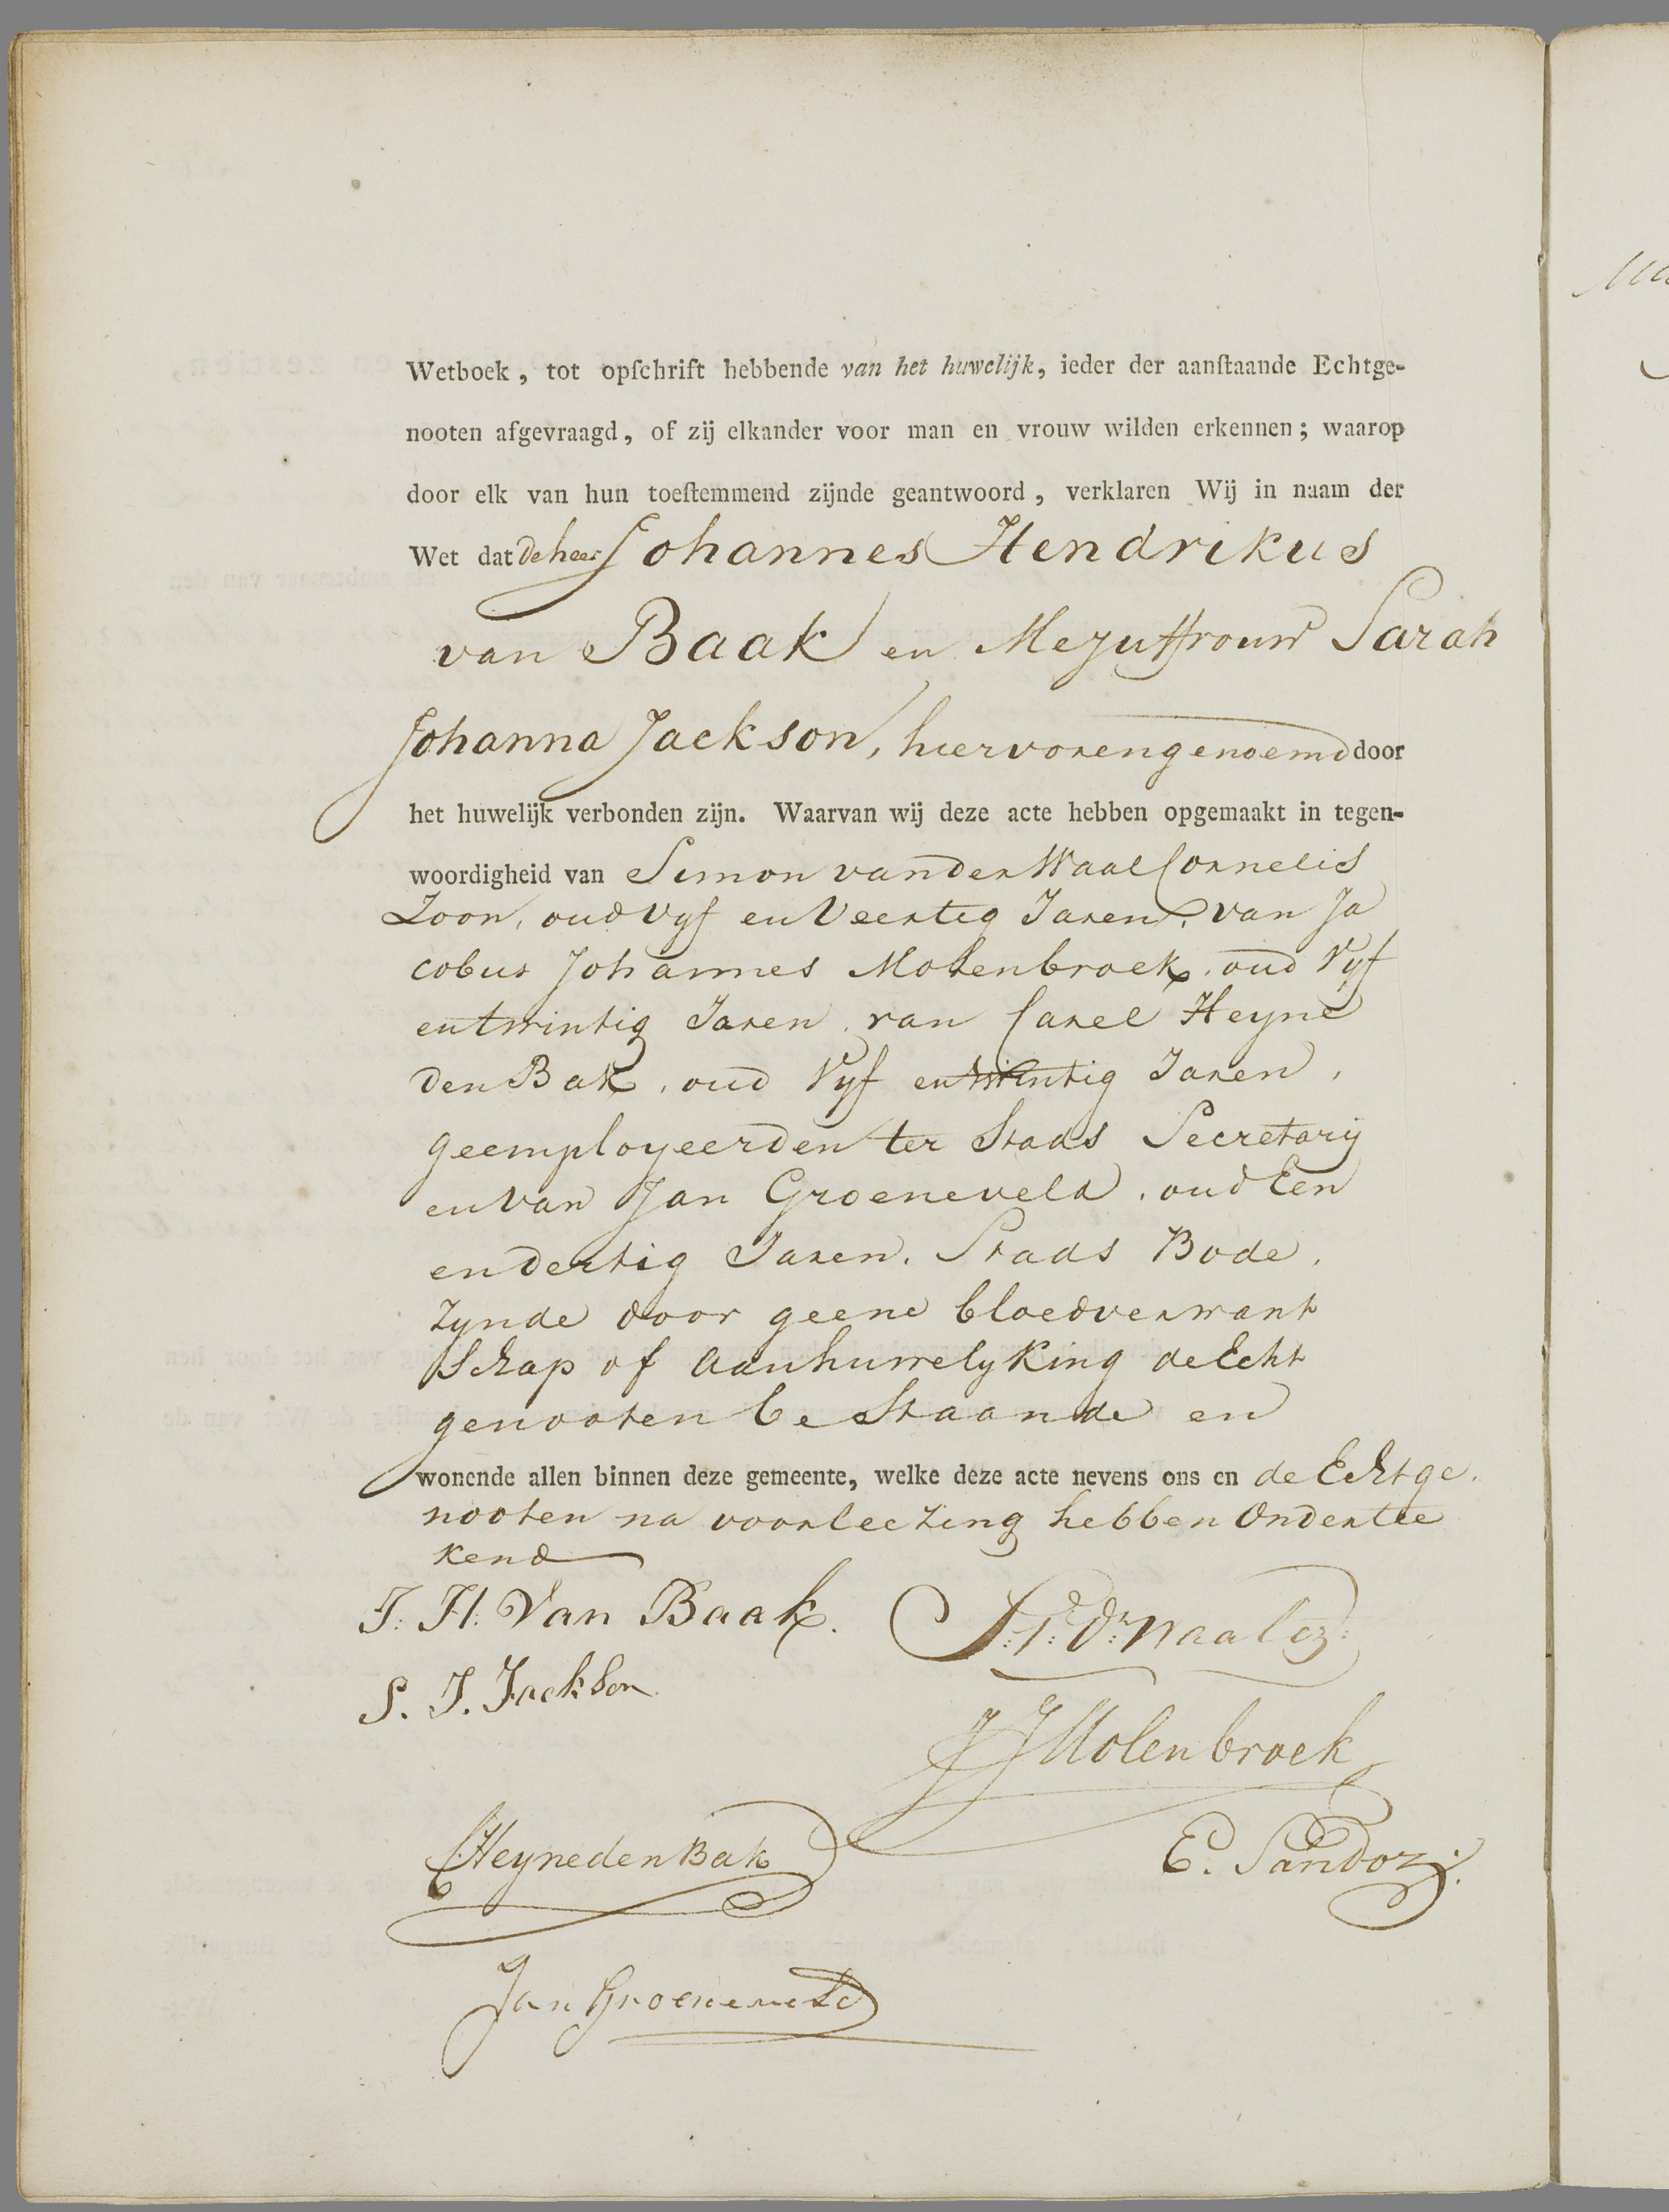 Wetboek, tot opſchrift hebbende van het huwelijk, ieder der aanſtaande Echtge-
nooten afgevraagd, of zij elkander voor man en vrouw wilden erkennen; waarop
door elk van hun toeſtemmend zijnde geantwoord, verklaren Wij in naam der
Wet dat de heer Johannes Hendrikus
van Baak en Mejuffrouw Sarah
Johanna Jackson, hiervorengenoemd door
het huwelijk verbonden zijn. Waarvan wij deze acte hebben opgemaakt in tegen-
woordigheid van Simon van der Waal Cornelis
Zoon, oud Vyf en Veertig Jaren, van Ja
cobus Johannes Molenbroek, oud Vyf
en twintig Jaren, van Carel Heyne
den Bak, oud Vyf en twintig Jaren,
geemployeerden ter Stads Secretary
en van Jan Groeneveld, oud Een
en dertig Jaren. Stads Bode,
zynde door geene bloedverwant
schap of aanhuwelyking de Echt
genooten bestaande en
wonende allen binnen deze gemeente, welke deze acte nevens ons en de Echtge.
nooten na voorleezing hebben ondertee
kend
J. H. Van Baak.
S. v. d. Waal Cz:
S. J. Jackson
JJ Molenbroek
C Heyne den Bak
E. Sandoz
Jan Groeneveld